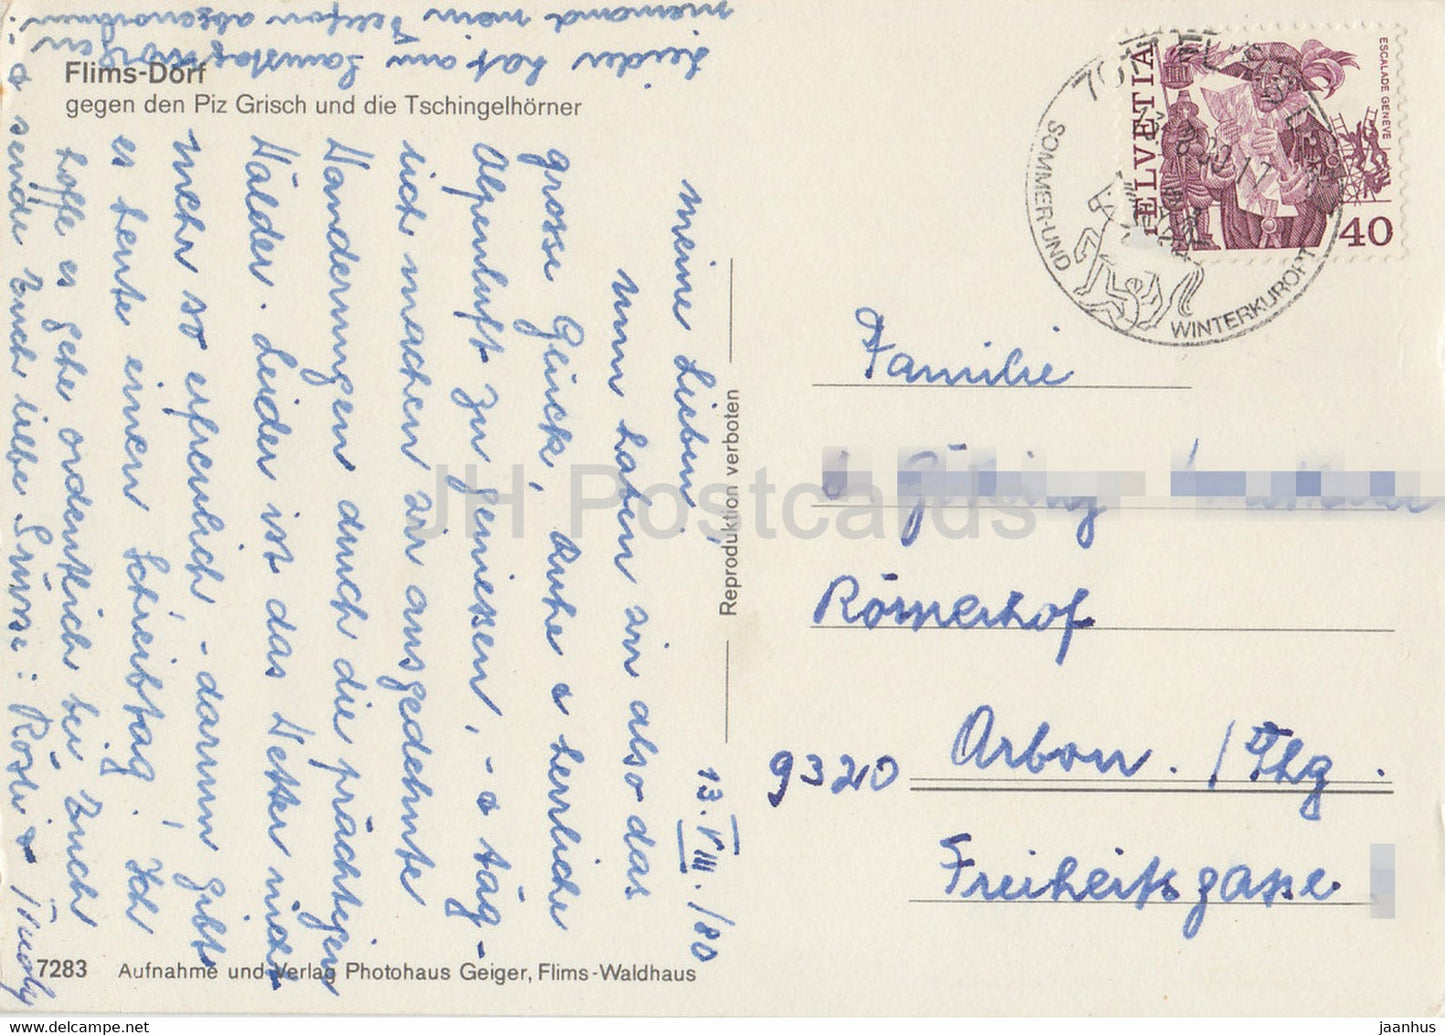 Flims-Dorf
gegen den Piz Grisch und die Tschingelhörner
13. VIII. /80
Meine Lieben,
Nun haben wir also das
grosse Glück, Ruhe & herrliche
Alpenluft zu geniessen, - & täg-
lich machen wir ausgedehnte
Wanderungen durch die prächtigen
Wälder. Leider ist das Wetter nicht
mehr so erfreulich, - darum gibts
es heute einen Schreibtag. Ich
hoffe es gehe ordentlich bei Euch
& sende Euch liebe Grüsse: Rösli &
Leider hat am Samstag Morgen
niemand mein Telefon abgenommen!
7283 Aufnahme und Verlag Photohaus Geiger, Flims-Waldhaus
Reproduktion verboten
HELVETIA
ESCALADE GENÈVE
40
SOMMER- UND
WINTERKURORT
Familie
Römerhof
9320 Arbon. /Thg.
Freiheitsgasse
JH Postcards
hippostcard.com
jaanhus